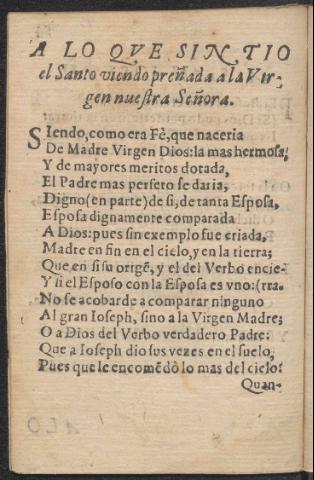 A LO QVE SINTIO
el Santo viendo preñada a la Vir-
gen nuestra Señora.
SIendo, como era Fè, que naceria
De Madre Virgen Dios: la mas hermosa,
Y de mayores meritos dotada,
El Padre mas perfeto se daria,
Digno (en parte) de si, de tanta Esposa,
Esposa dignamente comparada
A Dios: pues sin exemplo fue criada,
Madre en fin en el cielo, y en la tierra;
Que en si su orige, y el del Verbo encie-
Y si el Esposo con la Esposa es vno: (rra.
No se acobarde a comparar ninguno
Al gran Ioseph, sino a la Virgen Madre;
O a Dios del Verbo verdadero Padre:
Que a Ioseph dio sus vezes en el suelo,
Pues que le encomẽdò lo mas del cielo:
Quan-